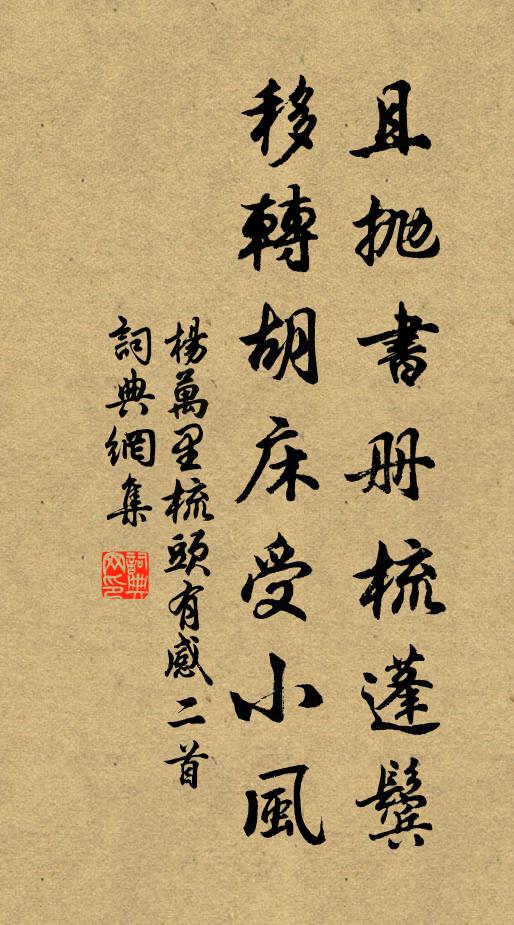 且抛書册梳蓬鬢
移轉胡床受小風
楊萬里梳頭有感二首
詞典網集
詞典網印